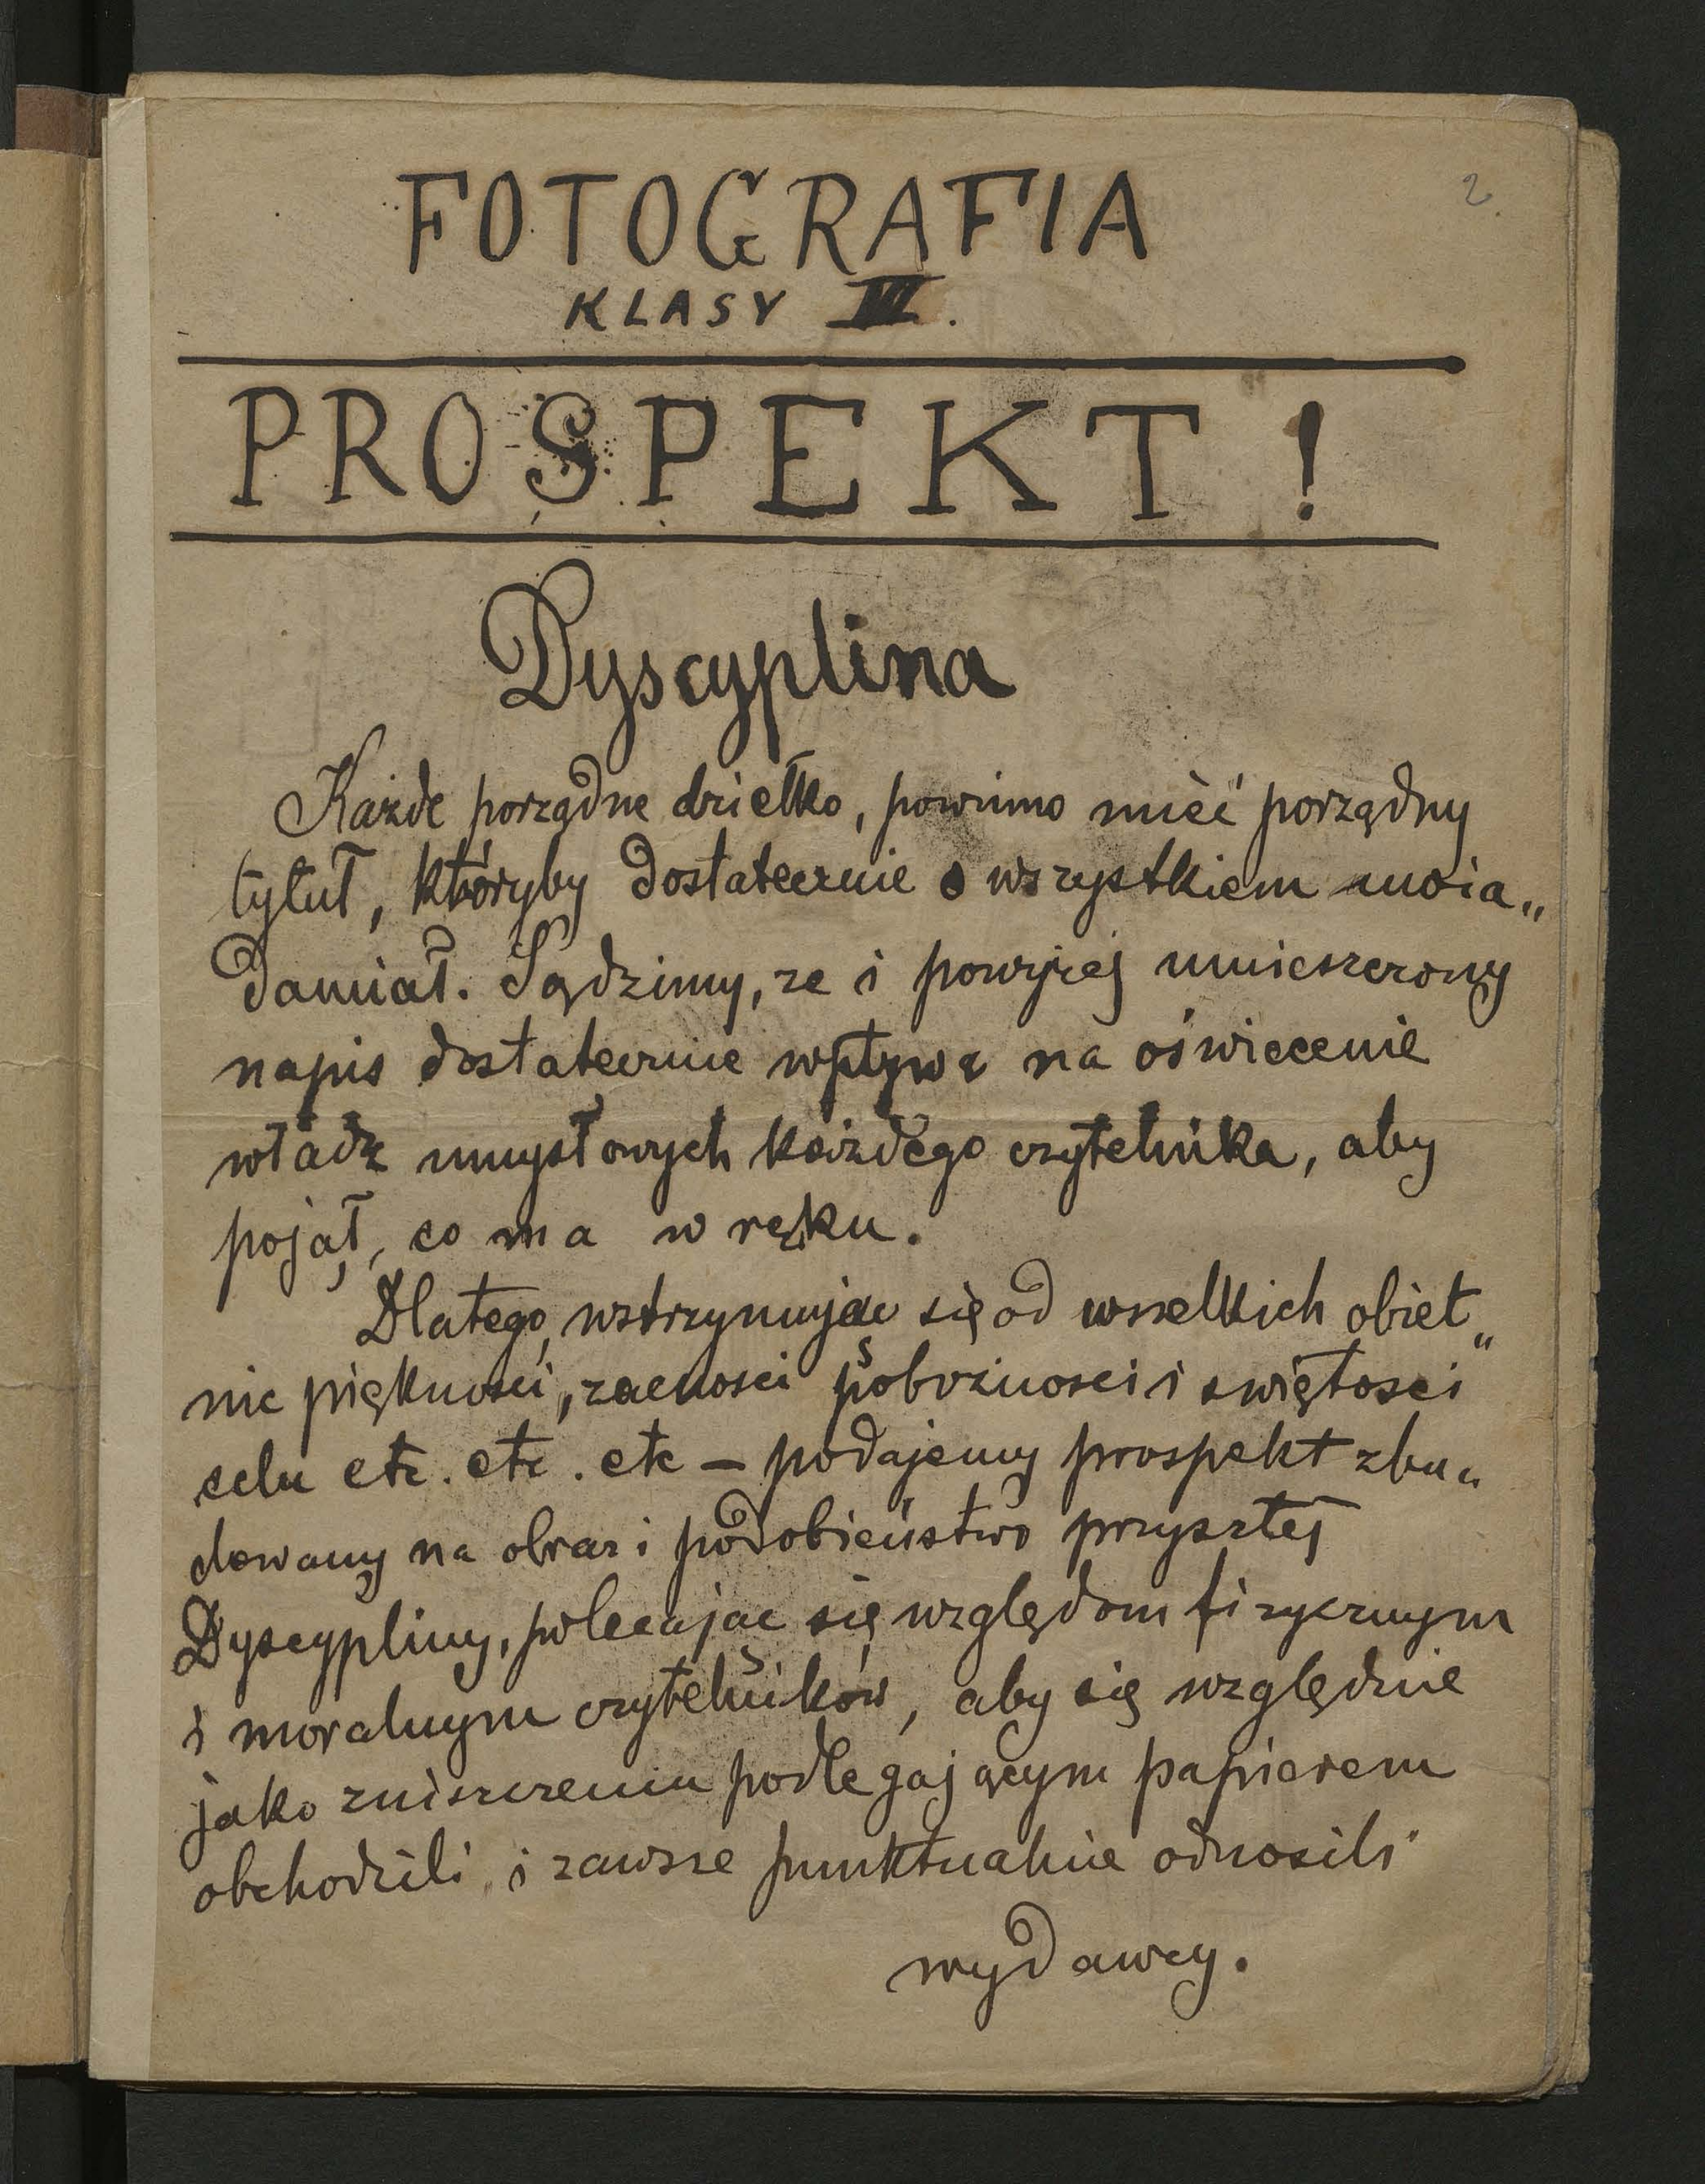 2.
FOTOGRAFIA
KLASY VI.
PROSPEKT!
Dyscyplina
Każde porządne dziełko, powinno mieć porządny
tytuł, któryby dostatecznie o wszystkiem uwia„
damiał. Sądzimy, ze i powyżej umieszczony
napis dostatecznie wpływa na oświecenie
władz umysłowych każdego czytelnika, aby
pojął, co ma w ręku.
Dlatego, wstrzymując się od wszelkich obiet„
nic piękności, zacności pobożności i swiętości
celu etc. etc. etc – podajemy prospekt zbu„
dowany na obraz i podobieństwo przyszłej
Dyscypliny, polecając się względom fizycznym
i moralnym czytelników, aby się względnie
jako zniszczeniu podlegającym papierem
obchodzili i zawsze punktualnie odnosili
wydawcy.